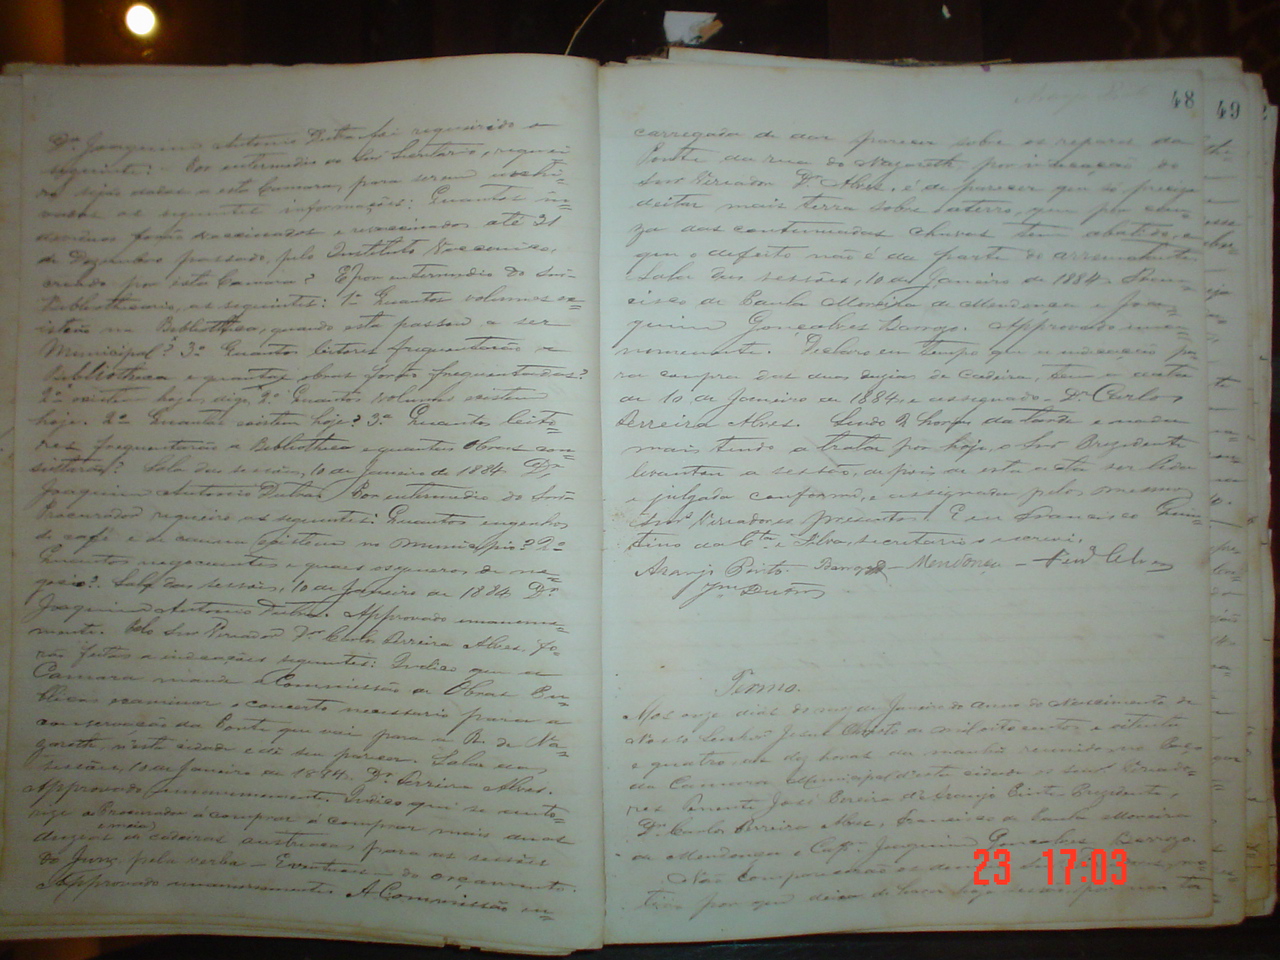 Dr. Joaquim Antonio Dutra foi requirido o
seguinte: Por intermedio do Snr Secretario, requei
ro sejão dadas a esta Camara, para serem
as seguintes informações: Quantos in=
forão vaccinados e revaccinados até 31
de Dezembro passado, pelo Instituto Vaccinico,
creado por esta Camara? E por intermedio do Snr
Bibliothecario, as seguintes: 1º Quantos volumes ex=
istião na Bibliotheca, quando esta passou a ser
Municipal? 3º Quantos leitores frequentarão a
Bibliotheca e quantas obras forão frequentadas?
2º existem hoje, digo, 2º Quantos volumes existem
hoje. 2º Quantos existem hoje? 3º Quantos leito=
res frequentarão a Bibliotheca e quantas Obras con=
sultarão? Sala das sessões, 10 de Janeiro de 1884. Dr.
Joaquim Antonio Dutra. Por intermedio do Snr
Procurador requeiro as seguintes: Quantos engenhos
de café e de canna existem no Municipio? 2º
Quantos negociantes e quaes os generos de ne=
gocio? Sala das sessões, 10 de Janeiro de 1884. Dr.
Joaquim Antonio Dutra. Approvado unanime=
mente. Pelo Snr Vereador Dr. Carlos Ferreira Alves, fo=
rão feitas a indicações seguintes: Indico que a
Camara mande a Commissão de Obras Pu=
blicas examinar o concerto necessario para a
conservação da Ponte que vai para a R. de Na=
gareth, n'esta cidade e dê seu parecer. Sala das
sessões, 10 de Janeiro de 1884. Dr. Ferreira Alves.
Approvado unanimemente. Indico que se auto=
rize o Procurador á comprar á comprar mais duas
duzias de cadeiras austriacas, para as sessões
do Jury, pela verba - Eventuaes - do orçamento.
Approvado unanimemente. A Commissão en=
48
49
carregada de dar parecer sobre os reparos da
Ponte da rua do Nazareth, por indicação do
Snr Vereador Dr. Alves, é de parecer que só precisa
deitar mais terra sobre o aterro, que por cau=
za das continuadas chuvas tem abatido, e
que o defeito não é da parte do arrematante.
Sala das sessões, 10 de Janeiro de 1884. Fran=
cisco de Paula Moreira de Mendonça e Joa=
quim Gonçalves Barrozo. Approvado una=
nimemente. Declaro em tempo que a indicação pa=
ra compra das duas duzias de cadeira, tem a data
de 10 de Janeiro de 1884, e assignado - Dr. Carlos
Ferreira Alves. Sendo 2 horas da tarde e nada
mais tendo a tratar por hoje, o Snr Prezidente
levantou a sessão, depois de esta acta ser lida
e julgada conforme, e assignada pelos mesmos
Snrs. Vereadores presentes. Eu Francisco
tino da Cta. e Silva, secretario o escrevi.
Araujo Pinto - Barrozo - Mendonça -
Jm Dutra
Termo.
Aos onze dias do mez de Janeiro do anno do Nascimento de
Nosso Senhor Jesus Christo de mil oitocentos e oitenta
e quatro, as dez horas da manhã, reunidos no Paço
da Camara Municipal d'esta cidade os Snrs. Vereado=
res Tenente José Pereira d'Araujo Pinto Prezidente,
Dr. Carlos Ferreira Alves, Francisco de Paula Moreira
de Mendonça e Capm. Joaquim Gonçalves Barrozo.
Não comparecerão os
tivo por que deixa de haver hoje sessão por
23 17:03